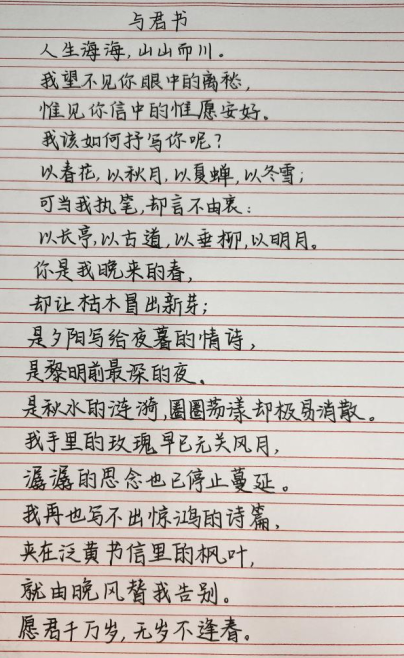 与君书
人生海海,山山而川。
我望不见你眼中的离愁,
惟见你信中的惟愿安好。
我该如何抒写你呢?
以春花,以秋月,以夏蝉,以冬雪;
可当我执笔,却言不由衷:
以长亭,以古道,以垂柳,以明月。
你是我晚来的春,
却让枯木冒出新芽;
是夕阳写给夜暮的情诗,
是黎明前最深的夜、
是秋水的涟漪,圈圈荡漾却极易消散。
我手里的玫瑰早已无关风月,
潺潺的思念也已停止蔓延。
我再也写不出惊鸿的诗篇,
夹在泛黄书信里的枫叶,
就由晚风替我告别。
愿君千万岁,无岁不逢春。